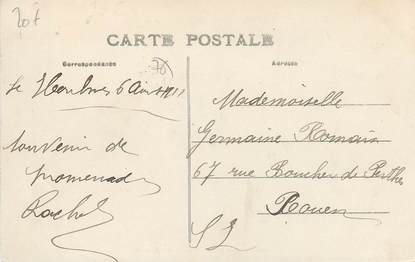 20f
CARTE POSTALE
Correspondance
Adresse
76
le 6 Août 1911
Souvenir de
promenade
Rachel
Mademoiselle
Germaine Romain
67 rue Boucher de Perthes
Rouen
S I